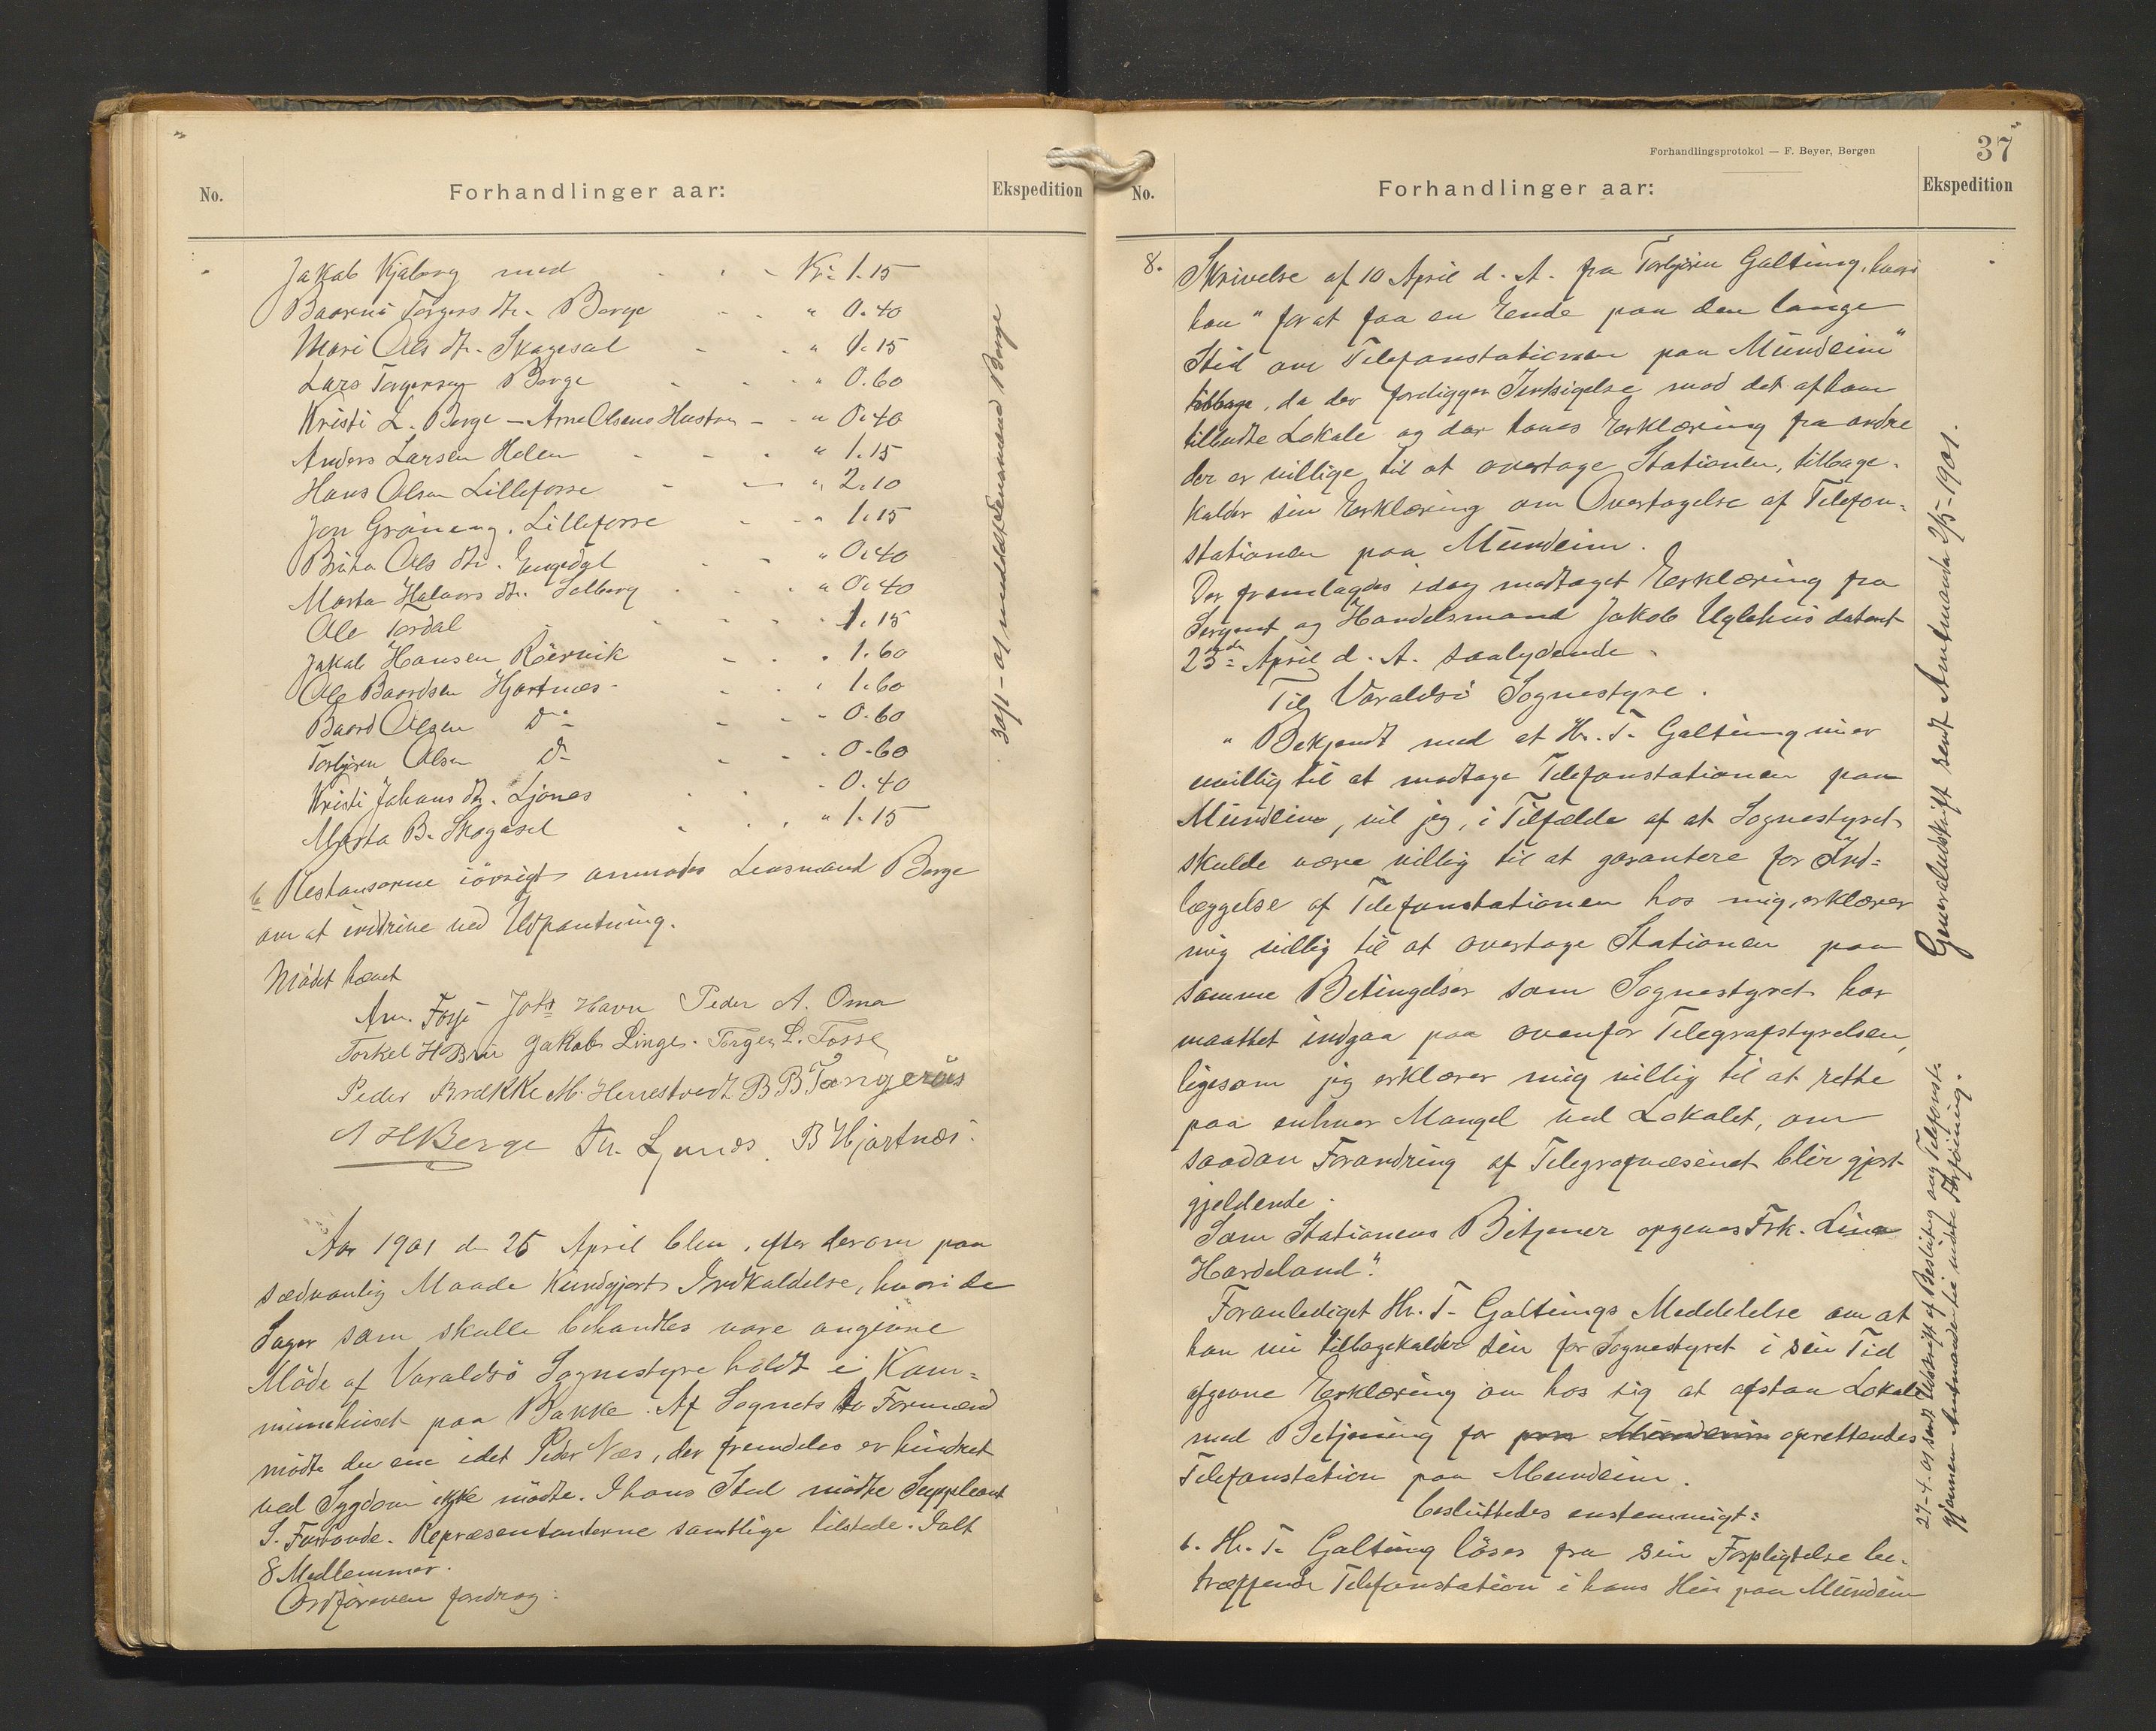 No.
Forhandlinger aar:
Ekspedition
Jakob Kjaberg med - - - Kr: 1.15
Baarni Torgers dtr. Berge - - " 0.40
Mari Ols dtr. Skogasel - - " 1.15
Lars Torgersen Berge - - - " 0.60
Kristi L. Berge - Arne Olsens Hustru - - " 0.40
Anders Larsen Helen - - - " 1.15
Hans Olsen Lillefosse - - " 2.10
Jon Gröneng, Lillefosse - - " 1.15
Brita Ols dtr. Engedal - - " 0.40
Marta Halvors dtr. Solberg - - - " 0.40
Ole Tordal - - - - 1.15
Jakob Hansen Röervik - - - 1.60
Ole Baardsen Hjartnes - - - 1.60
Baard Olsen Do - - - 0.60
Torbjören Olsen Do - - - 0.60
Kristi Johans dtr. Ljones - - - 0.40
Marta B. Skogasel - - - " 1.15
b Restanserne iövrigt anmodes Lensmand Berge
om at inddrive ved Udpantning.
Mödet hævet
Am. Fosse Johs Havn Peder A. Oma
Torkel H Brui Jakob Linge. Torger L. Fosse
Peder Brække M. Herrestvedt B B Tangerås
A H Berge Th. Lunds. B Hjartnes.
30/1 - 01 meddelt Lensmand Berge
Aar 1901 den 25 April blev, efter derom paa
sædvanlig Maade Kundgjort Indkaldelse, hvori de
Sager som skulle behandles vare angivne
Möde af Varaldsö Sognestyre holdt i Kom=
munehuset paa Bakke. Af Sognets to Formænd
mödte den ene idet Peder Næs, der fremdeles er hindret
ved Sygdom ikke mödte. I hans Sted mödte Suppleant
S. Forlande. Repræsentanterne samtlige tilstede. Ialt
8 Medlemmer.
Ordföreren foredrog:
Forhandlingsprotokol — F. Beyer, Bergen
37
No.
Forhandlinger aar:
Ekspedition
8. Skrivelse af 10 April d. A. fra Torbjören Galtung, hvori
han "for at faa en Ende paa den lange
Strid om Telefonstationen paa Mundeim"
tilbage, da der foreligger Indsigelse mod det af ham
tilbudte Lokale og der haves Erklæring fra andre
der er villige til at overtage Stationen, tilbage-
kalder sin Erklæring om Overtagelse af Telefon-
stationen paa Mundeim.
Der fremlagdes idag modtaget Erklæring fra
Sergeant og Handelsmand Jakob Uglehus dateret
23de April d. A. saalydende.
Til Varaldsö Sognestyre.
" Bekjendt med at Hr. T. Galtung nu er
uvillig til at modtage Telefonstationen paa
Mundeim, vil jeg, i Tilfælde af at Sognestyret
skulde være villig til at garantere for Ind=
læggelse af Telefonstationen hos mig, erklærer
mig villig til at overtage Stationen paa
samme Betingelser som Sognestyret har
maattet indgaa paa ovenfor Telegrafstyrelsen,
ligesom jeg erklærer mig villig til at rette
paa enhver Mangel ved Lokalet, om
saadan Forandring af Telegrafvæsenet blir gjort
gjeldende.
Som Stationens Betjener opgives Frk. Lina
Hardeland".
Foranlediget Hr. T. Galtungs Meddelelse om at
han nu tilbagekalder sin for Sognestyret i sin Tid
afgivne Erklæring om hos sig at afstaa Lokale
med Betjening for paa Mundeim oprettendes
Telefonstation paa Mundeim.
besluttedes enstemmigt:
b. Hr. T. Galtung löses fra sin Forpligtelse be-
træffende Telefonstation i hans Hus paa Mundeim
Generaludskrift sendt Amtmanden 2/5-1901.
27-4-01 sendt Udskrift af Beslutng ang Telefonst.
gjennem Amtmanden til videre Forföining.